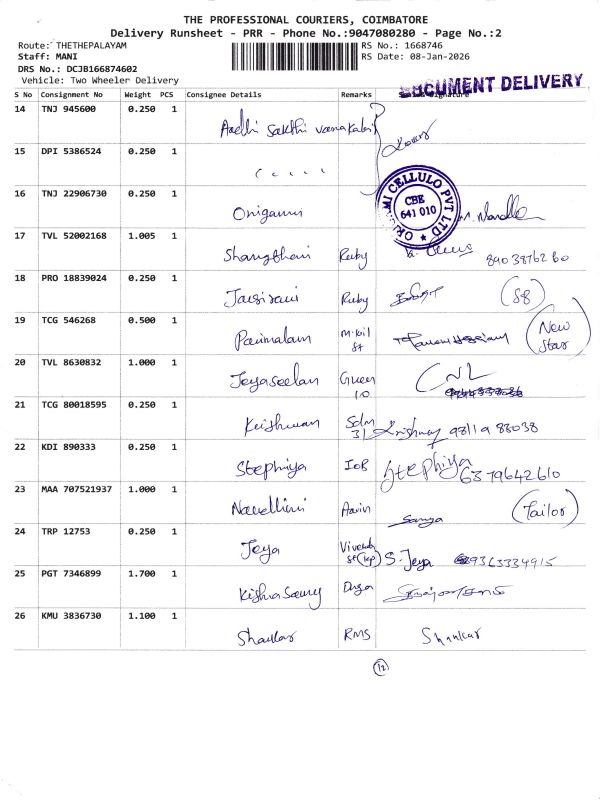 THE PROFESSIONAL COURIERS, COIMBATORE
Delivery Runsheet - PRR - Phone No.:9047080280 - Page No.:2
Route: THETHEPALAYAM RS No.: 1668746
Staff: MANI RS Date: 08-Jan-2026
DRS No.: DCJB166874602
Vehicle: Two Wheeler Delivery
DOCUMENT DELIVERY
S No Consignment No Weight PCS Consignee Details Remarks Signature
14 TNJ 945600 0.250 1 Aadhi Sakthi
15 DPI 5386524 0.250 1
16 TNJ 22906730 0.250 1 Origami
CELLULO PVT LTD
CBE
641 010
17 TVL 52002168 1.005 1 Ruby 8903876260
18 PRO 18839024 0.250 1 Ruby (S8)
19 TCG 546268 0.500 1 Parimalam (New Star)
20 TVL 8630832 1.000 1 Jeyaseelan Green 10
21 TCG 80018595 0.250 1 Krishnan 31 98119 88038
22 KDI 890333 0.250 1 Stephiya IOB Stephiya 6379642610
23 MAA 707521937 1.000 1 Aavin (Tailor)
24 TRP 12753 0.250 1 Jeya S. Jeya 9363334915
25 PGT 7346899 1.700 1
26 KMU 3836730 1.100 1 Shankar RMS Shankar
12